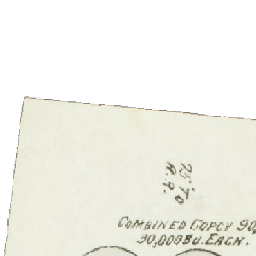 75' TO
R.R.
COMBINED COPCY 90,
30,000 BU. EACH.